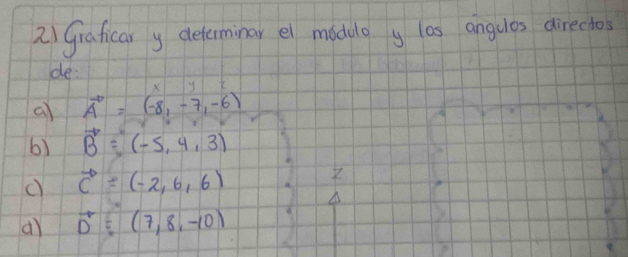 2) Graficar y determinar el módulo y los ángulos directos
de:
x y z
a) A⃗ = (-8, -7, -6)
b) B⃗ = (-5, 4, 3)
c) C⃗ = (-2, 6, 6)
d) D⃗ = (7, 8, -10)
z